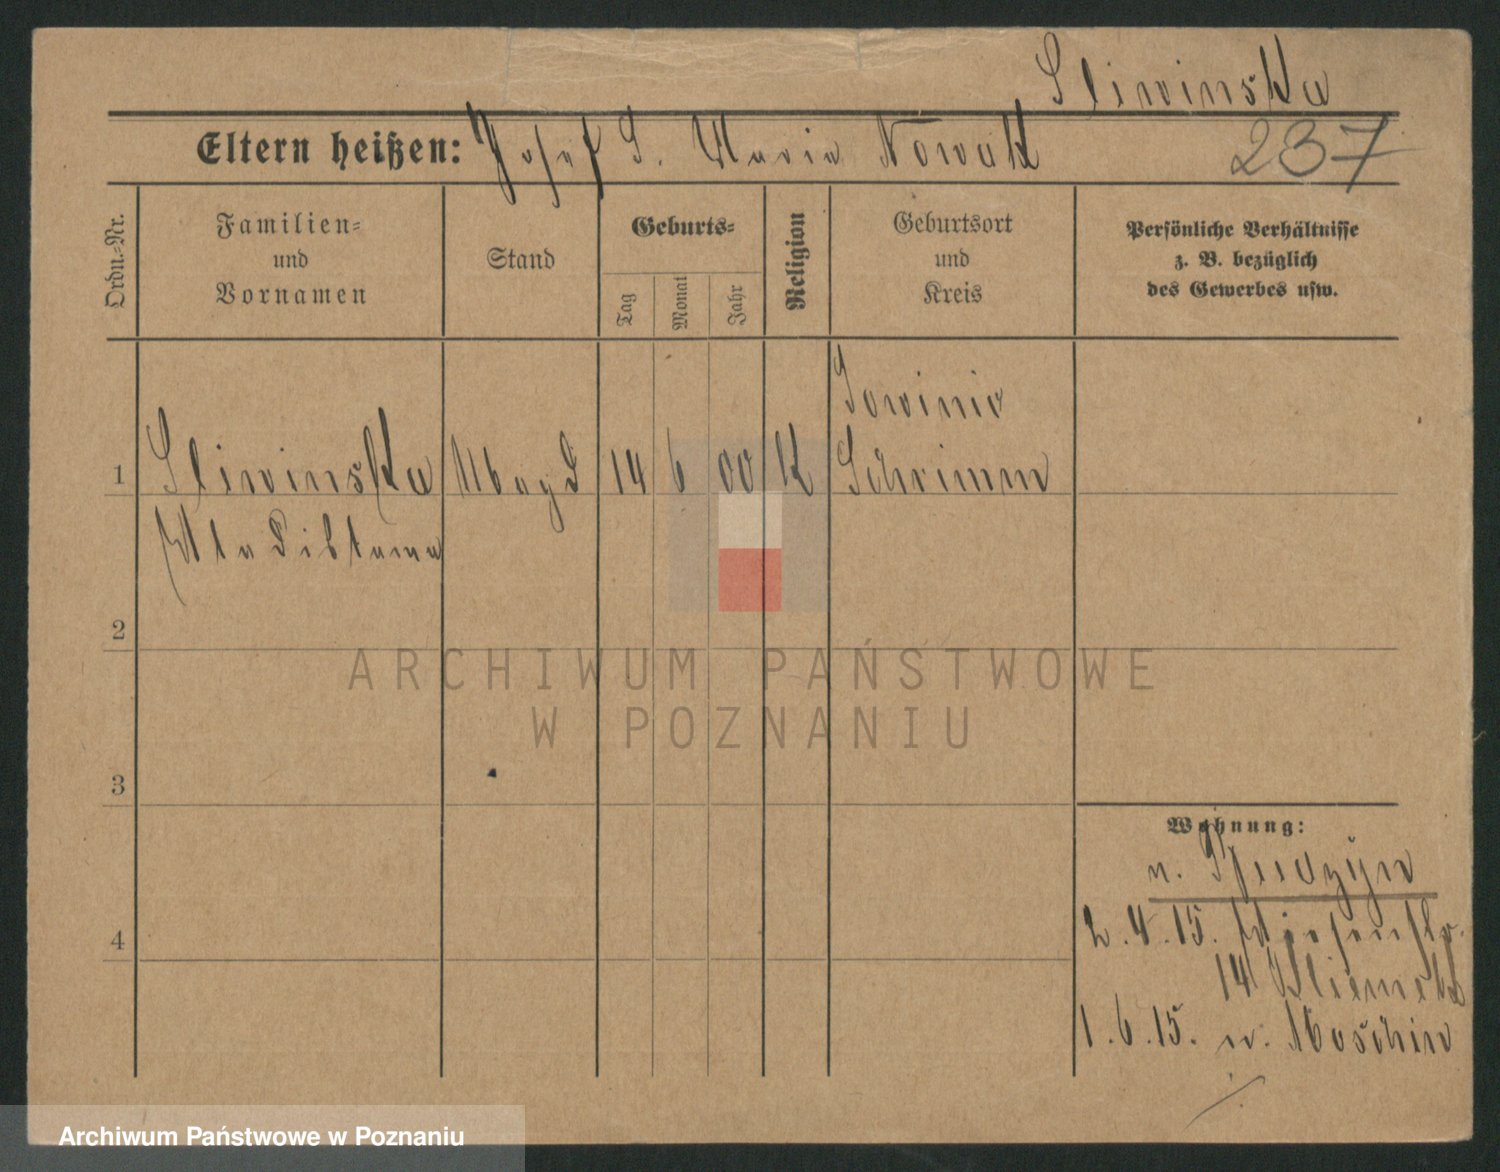 Sliwinska
Eltern heißen: Josef S. Maria Nowak 237
Ordn.-Nr.
Familien-
und
Vornamen
Stand
Geburts-
Tag
Monat
Jahr
Religion
Geburtsort
und
Kreis
Persönliche Verhältnisse
z. B. bezüglich
des Gewerbes usw.
Gowinie
1 Sliwinska Magd 14 6 00 K Schrimm
Wladislawa
2
3
4
Wohnung:
n.
2.4.15. Wiesenstr.
14
1.6.15. n. Moschin
ARCHIWUM PAŃSTWOWE
W POZNANIU
Archiwum Państwowe w Poznaniu